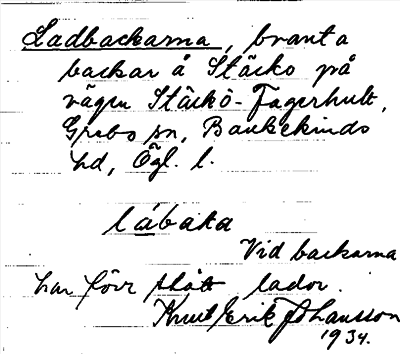 Ladbackarna, branta
backar å Stäckö på
vägen Stäckö-Fagerhult,
Grebo sn, Bankekinds
hd, Ögl. l.
lábaka
Vid backarna
har förr stått lador.
Knut Erik Johansson
1934.